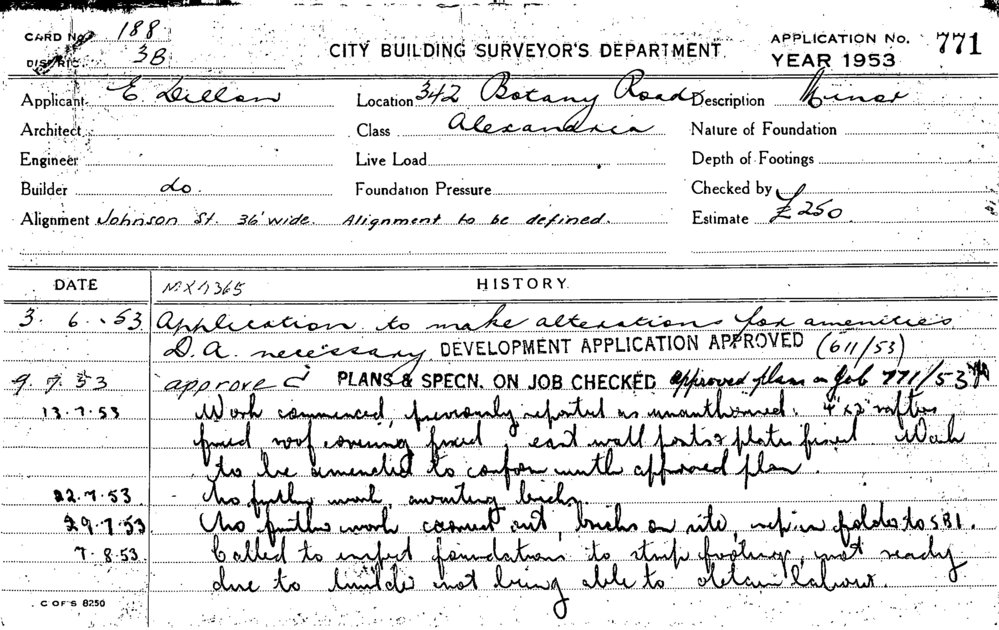 CARD No. 188
DISTRICT 3B
CITY BUILDING SURVEYOR'S DEPARTMENT
APPLICATION No. 771
YEAR 1953
Applicant E. Dillon Location 342 Botany Road Description Minor
Architect Class Alexandria Nature of Foundation
Engineer Live Load Depth of Footings
Builder do. Foundation Pressure Checked by
Alignment Johnson St. 36' wide. Alignment to be defined. Estimate £250
DATE HISTORY.
3. 6. 53 Application to make alterations for amenities
D.A. necessary DEVELOPMENT APPLICATION APPROVED (611/53)
9. 7. 53 approved PLANS & SPECN. ON JOB CHECKED approved plans on job 771/53
13.7.53 Work commenced, previously reported as unauthorised. 4"x2" rafters
fixed roof covering fixed, east wall posts & plates fixed. Work
to be amended to conform with approved plan.
22.7.53 No further work, awaiting bricks.
29.7.53 No further work carried out, bricks on site, in folder to S81.
7.8.53 Called to inspect foundations to strip footings, not ready
due to builder not being able to obtain labour.
C OF S 8250